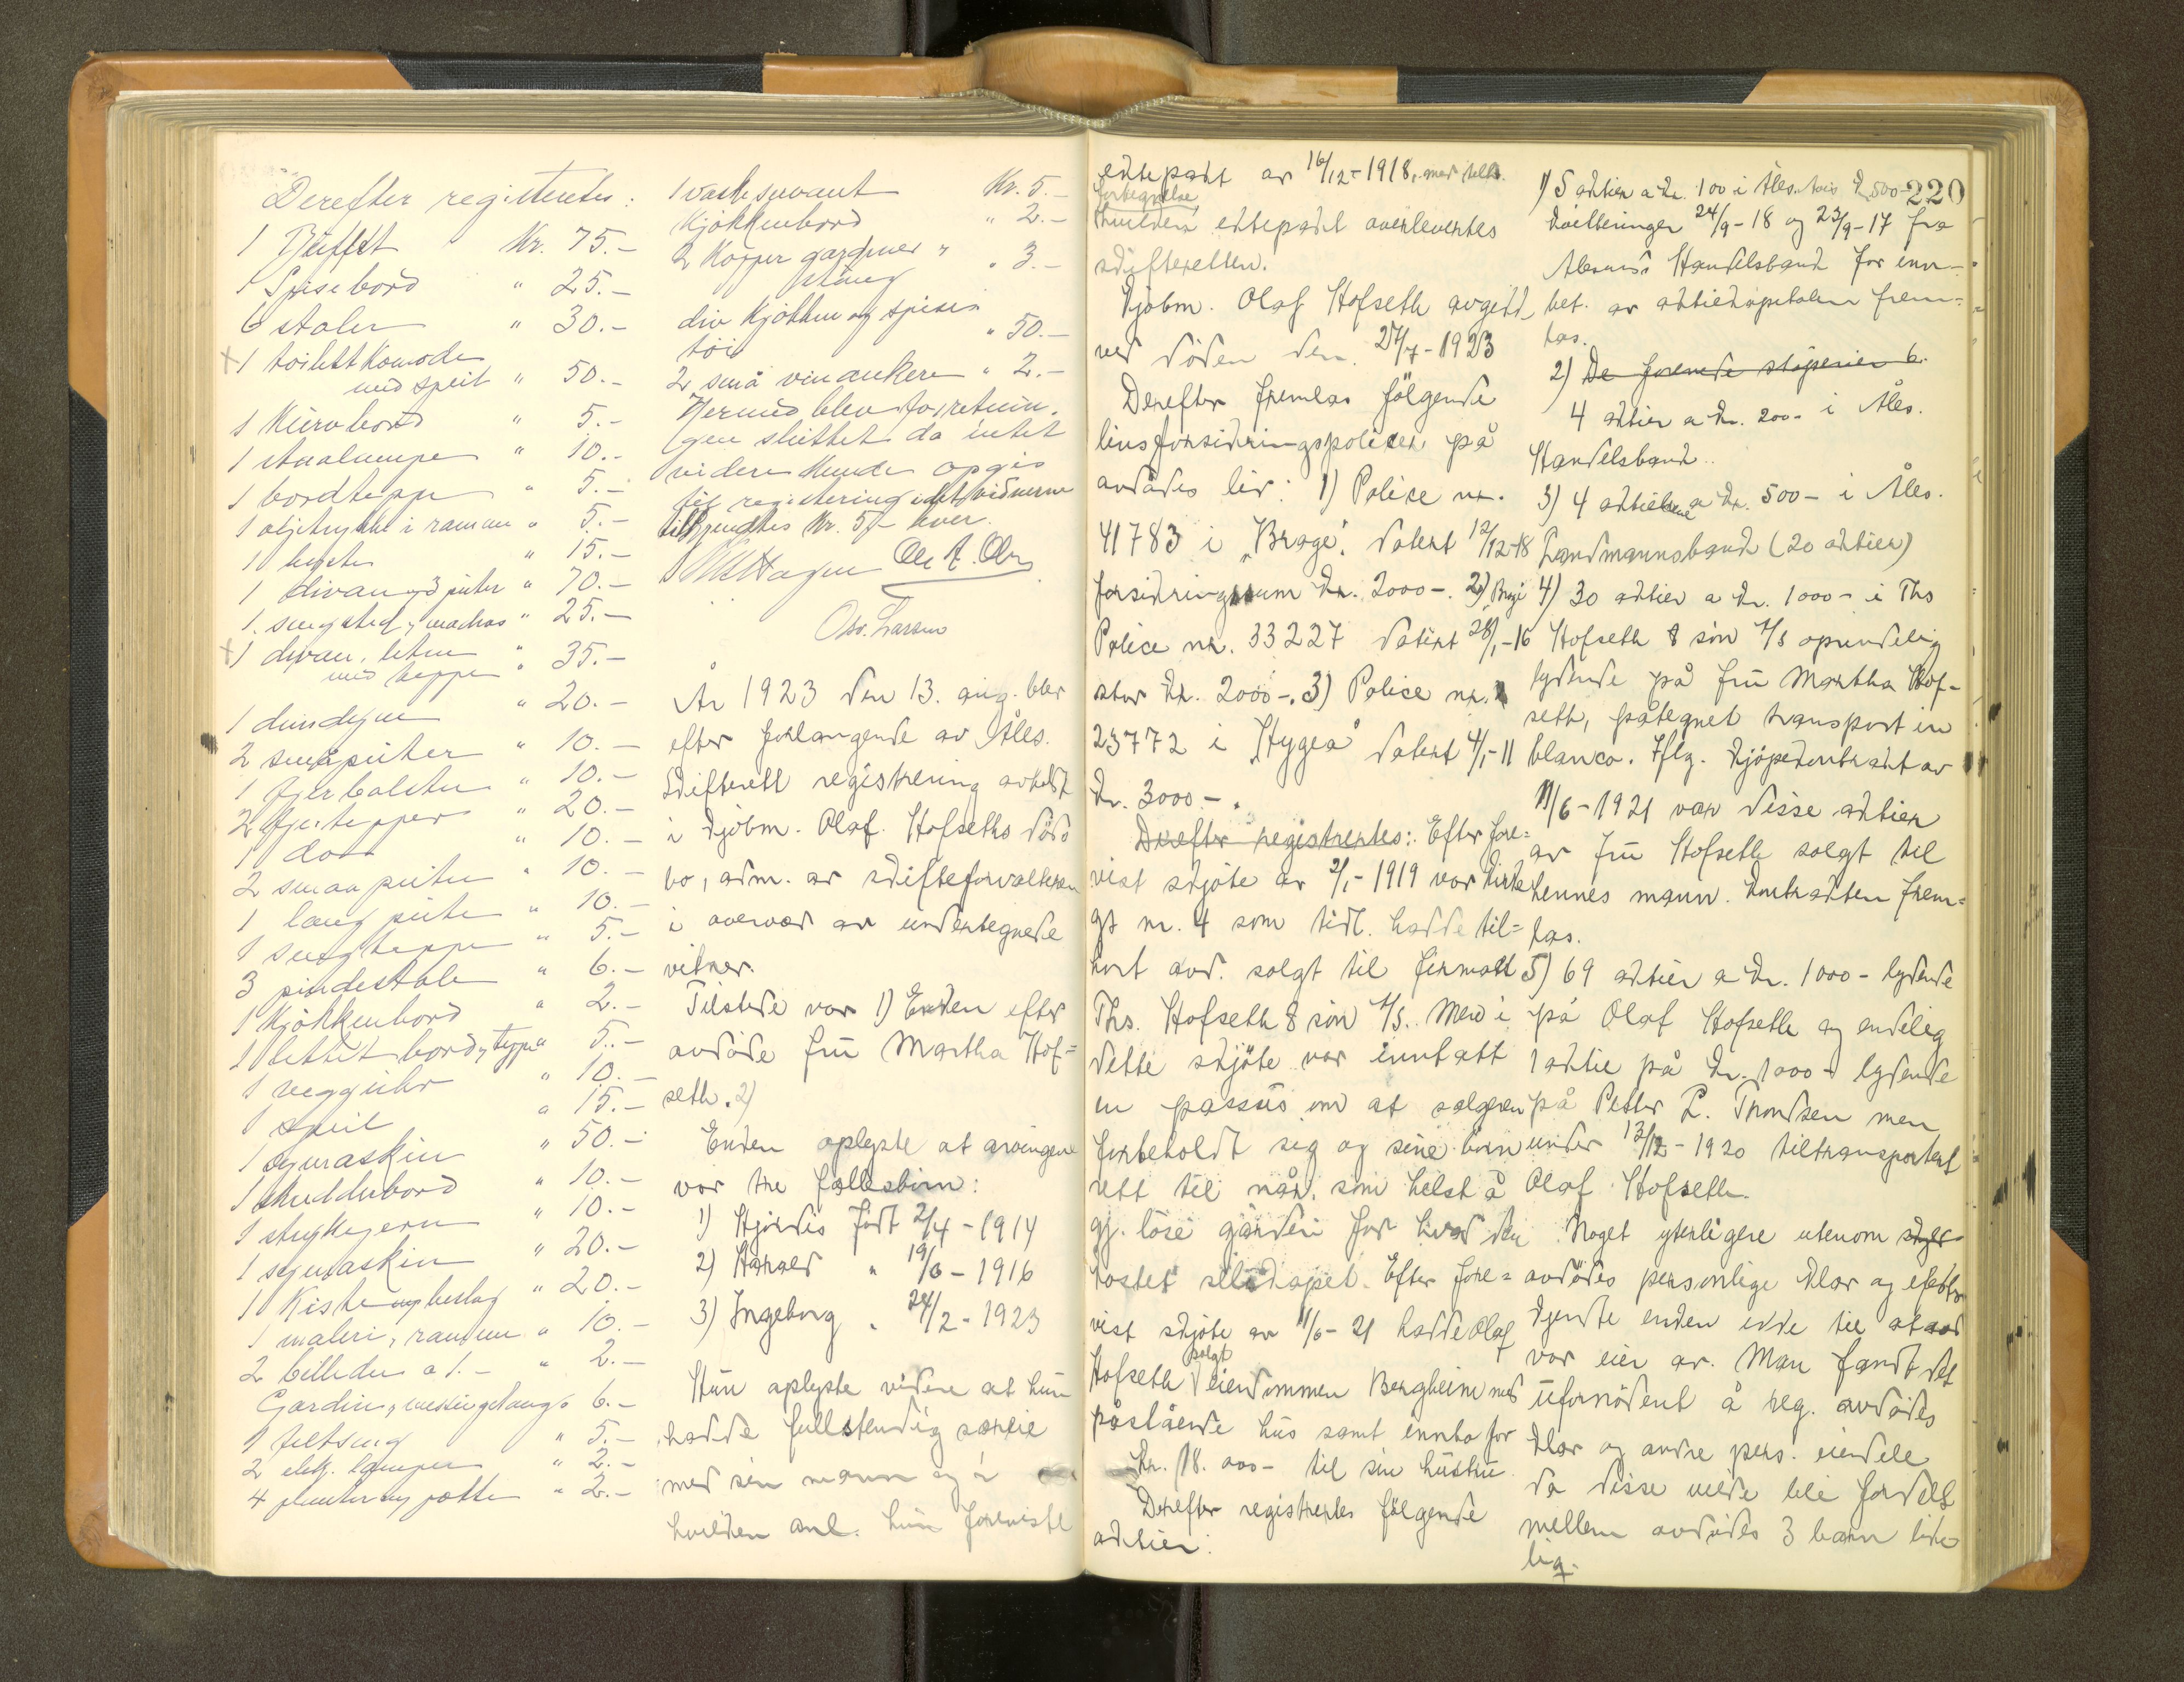 Derefter registreres:
1 Büffet Kr. 75.-
1 Spisebord " 25.-
6 stoler " 30.-
+ 1 toilettkomode
med speil " 50.-
1 Kürvbord " 5.-
1 staalampe " 10.-
1 bordteppe " 5.-
1 oljetrykk i ramme " 5.-
1 " 15.-
1 divan og 3 puter " 70.-
1 sengested, madras " 25.-
+ 1 divan, liten
med teppe " 35.-
1 dundyne " 20.-
2 små puter " 10.-
1 fjerbolster " 10.-
2 fjertepper " 20.-
1 do " 10.-
2 smaa puter " 10.-
1 lang pute " 10.-
1 sengteppe " 5.-
3 pindestole " 6.-
1 Kjøkkenbord " 2.-
1 litet bord, teppe " 5.-
1 veggühr " 10.-
1 speil " 15.-
1 symaskin " 50.-
1 bord " 10.-
1 strykejern " 10.-
1 symaskin " 20.-
1 Kiste beslag " 20.-
1 maleri, ramme " 10.-
2 billeder a 1.- " 2.-
Gardin, 6.-
1 feltseng " 5.-
2 elek. lamper " 2.-
4 planter og potte " 2.-
1 vaskeservant Kr. 5.-
Kjøkkenbord " 2.-
2 Kopper gardiner "
stang " 3.-
div Kjøkken og spise-
töi " 50.-
2 små vinankere " 2.-
Hermed blev forretnin-
gen sluttet da intet
videre kunde opgis
til registrering idet vidnerne
tilkjendtes Kr. 5,- hver.
Hagen Ole A. Olsen
Osv. Larsen
År 1923 den 13. aug. blev
efter forlangende av Åles.
skifterett registrering avholdt
i kjøbm. Olaf Hofseths döds
bo, adm. av skifteforvalteren
i overvær av undertegnede
vitner.
Tilstede var 1) Enken efter
avdöde frü Martha Hof=
seth. 2)
Enken oplyste at arvingene
var tre fællesbörn:
1) Hjördis født 2/4 - 1914
2) Harald " 19/6 - 1916
3) Ingeborg " 24/2 - 1923
Hün oplyste videre at hün
hadde fullstendig særeie
med sin mann og i
hvilken anl. hün foreviste
ektepakt av 16/12 - 1918, med tilh.
fortegnelse
hvilken ektepakt overlevertes
skifteretten.
Kjöbm. Olaf Hofseth avgikk
ved döden den 27/7 - 1923
Derefter fremlas fölgende
livsforsikringspoliser på
avdödes liv: 1) Police nr.
41783 i „Brage", datert 12/12-18
forsikringssum kr. 2000-. 2) Brage
Police nr. 33227 datert 28/1 - 16
stor kr. 2000-. 3) Police nr.
23772 i „Hygea" datert 4/1 - 11
kr. 3000-.
Derefter registrertes: Efter fore=
vist skjöte av 2/1 - 1919 var Kirke
gt nr. 4 som tidl. hadde til=
hört avd. solgt til firmaet
Ths. Hofseth & sön A/S. Men i
dette skjöte var inntatt
en passüs om at selgeren
forbeholdt sig og sine barn
rett til når som helst å
gj. löse gården for hvad den
kostet selskapet. Efter fore=
vist skjöte av 11/6 - 21 hadde Olaf
Hofseth solgt eiendommen Bergheim med
påstående hüs samt innbo for
kr. 18.000- til sin hüstrü.
Derefter registrertes fölgende
aktier:
220
1) 5 aktier a kr. 100 i Åles. Avis kr. 500-
Kvitteringer 24/9 - 18 og 23/9 - 17 fra
Ålesunds Handelsbank for inn-
bet. av aktiekapitalen frem=
las.
2) De forenede stöperier 6.
4 aktier a kr. 200- i Åles.
Handelsbank.
3) 4 aktiebreve a kr. 500- i Åles.
Landmannsbank (20 aktier)
4) 30 aktier a kr. 1000- i Ths
Hofseth & sön A/S oprindelig
lydende på frü Martha Hof-
seth, påtegnet transport in
blanco. Iflg. kjöpekontrakt av
11/6 - 1921 var disse aktier
av frü Hofseth solgt til
hennes mann. Kontrakten frem=
las.
5) 69 aktier a kr. 1000- lydende
på Olaf Hofseth og endelig
1 aktie på kr. 1000- lydende
på Petter L. Trondsen men
under 13/12 - 1920 tiltransportert
Olaf Hofseth.
Noget yterligere utenom
avdödes personlige klær og efekter
kjendte enken ikke til at avd
var eier av. Man fandt det
üfornödent å reg. avdödes
klær og andre pers. eiendele
da disse vilde bli fordelt
mellem avdödes 3 barn like
lig.